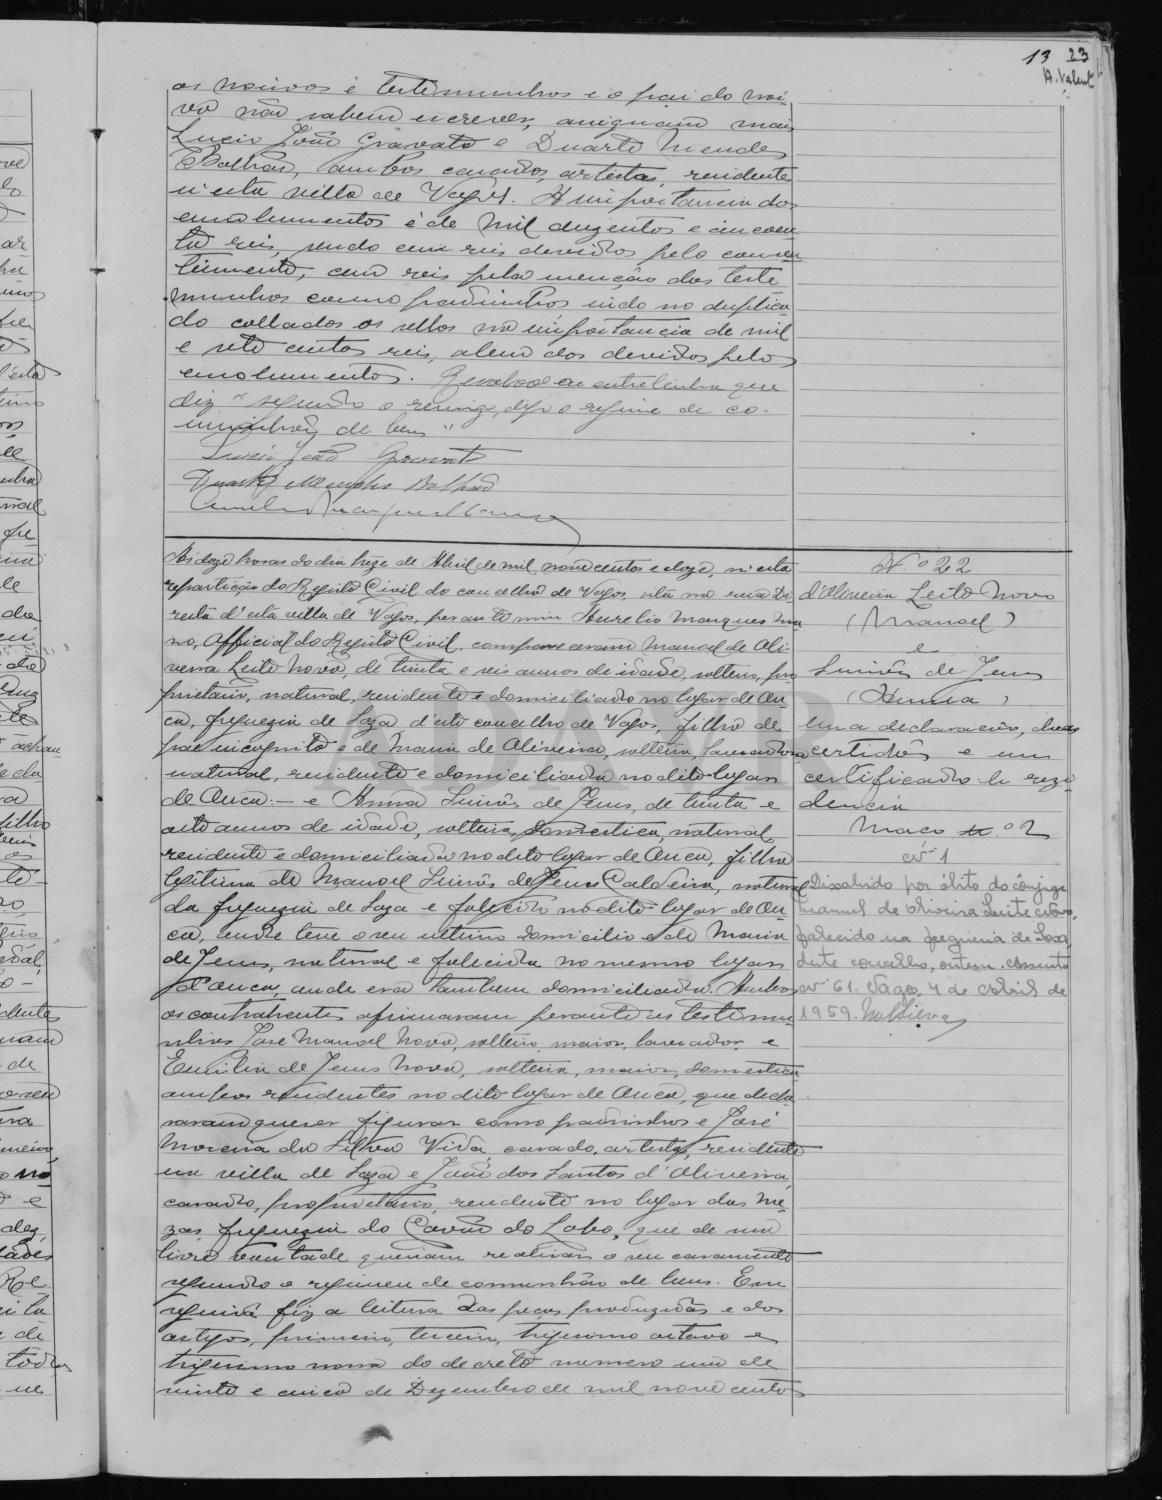 13 23
A. Valente
os noivos e testemunhas e o pai do noi-
vo não sabem escrever, assignam mais
Lucio João Gravato e Duarte Mendes
Bolhão, ambos casados, artistas, residentes
n'esta villa de Vagos. A importancia dos
emolumentos é de mil duzentos e cincoen
ta reis, sendo cem reis devidos pelo consen
timento, cem reis pela menção das teste
munhas como padrinhos indo no duplica
do collados os sellos na importancia de mil
e sete centos reis, alem dos devidos pelos
emolumentos. Resalvo a entrelinha que
diz "segundo o regimen, digo o regime de co-
munhão de bens"
Lucio João Gravato
Duarte Mendes Bolhão
Aurelio Marques Mano
Ás doze horas do dia treze de Abril de mil novecentos e doze, n'esta
repartição do Registo Civil do concelho de Vagos, sita na rua Di-
reita d'esta villa de Vagos, perante mim Aurelio Marques Ma
no, Official do Registo Civil, compareceram Manoel de Oli-
veira Leite Novo, de trinta e seis annos de idade, solteiro, pro
prietario, natural, residente e domiciliado no lugar de Ou-
ca, freguezia de Soza d'este concelho de Vagos, filho de
pae incognito e de Maria de Oliveira, solteira, lavradora
natural, residente e domiciliada no dito lugar
de Ouca: — e Anna Simões de Jesus, de trinta e
oito annos de idade, solteira, domestica, natural
residente e domiciliada no dito lugar de Ouca, filha
legitima de Manoel Simões de Jesus Caldeira, natural
da freguezia de Soza e falecido no dito lugar de Ou-
ca, onde teve o seu ultimo domicilio e de Maria
de Jesus, natural e falecida no mesmo lugar
d'Ouca, onde era tambem domiciliada. Ambos
os contrahentes afirmaram perante as testemu-
nhas José Manoel Novo, solteiro, maior, lavrador e
Emilia de Jesus Nova, solteira, maior, domestica
ambos residentes no dito lugar de Ouca, que decla-
raram querer figurar como padrinhos e José
Moreira da Silva Vida, casado, artista, residente
na villa de Soza e João dos Santos d'Oliveira,
casado, proprietario, residente no lugar das Me-
zas, freguezia do Covão do Lobo, que de sua
livre vontade queriam realisar o seu casamento
segundo o regimen de comunhão de bens. Em
seguida fiz a leitura das peças produzidas e dos
artigos, primeiro, terceiro, trigesimo oitavo e
trigesimo nono do decreto numero um de
vinte e cinco de Dezembro de mil novecentos
Nº 22
d'Oliveira Leite Novo
(Manoel)
e
Simões de Jesus
(Anna)
uma declaração, duas
certidões e um
certificado de resi
dencia
Maço nº 2
nº 1
Dissolvido por óbito do cônjuge
Manuel de Oliveira Leite Novo,
falecido na freguesia de Soza,
deste concelho, ontem. Assento
nº 61. Vagos, 4 de Abril de
1959.